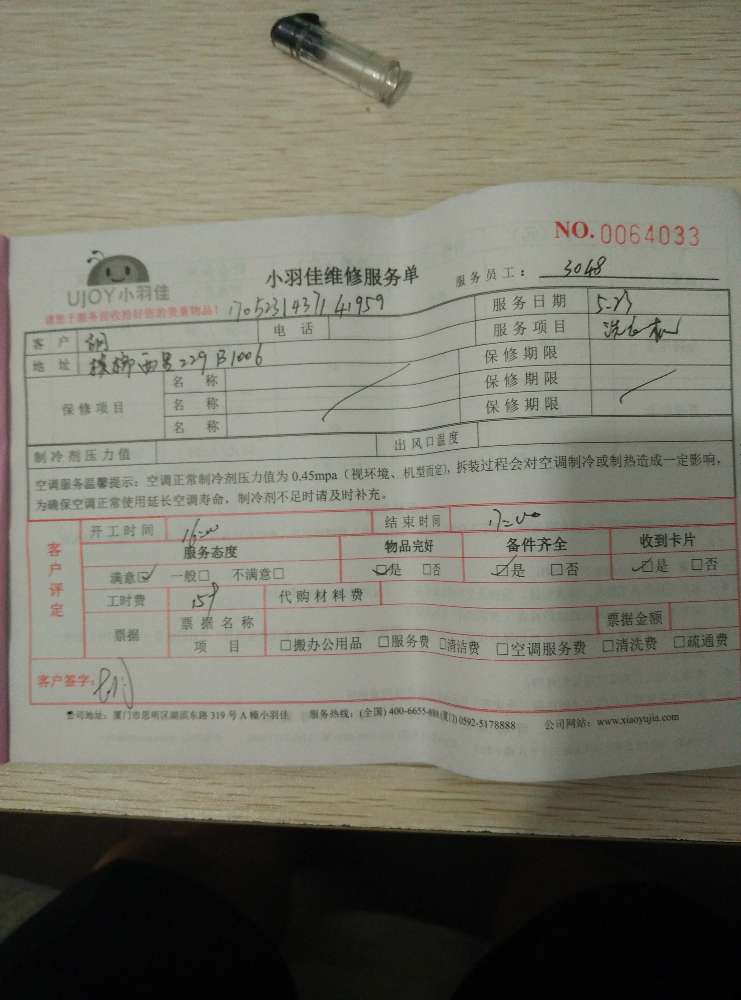 NO. 0064033
UJOY小羽佳
小羽佳维修服务单
服务员工： 3048
请您于服务前收拾好您的贵重物品！ 1705231437141959
服务日期 5-23
客 户 电 话 服务项目 洗衣机
地 址 西 229 B1006 保修期限
保修项目 名 称 保修期限
名 称 保修期限
名 称
制冷剂压力值 出风口温度
空调服务温馨提示：空调正常制冷剂压力值为 0.45mpa（视环境、机型而定），拆装过程会对空调制冷或制热造成一定影响，
为确保空调正常使用延长空调寿命，制冷剂不足时请及时补充。
客户评定
开工时间 16:00 结束时间 17:00
服务态度 物品完好 备件齐全 收到卡片
满意☑ 一般□ 不满意□ ☑是 □否 ☑是 □否 ☑是 □否
工时费 159 代购材料费
票据 票据名称 票据金额
项 目 □搬办公用品 □服务费 □清洁费 □空调服务费 □清洗费 □疏通费
客户签字：
公司地址：厦门市思明区湖滨东路 319 号 A 幢小羽佳 服务热线：(全国) 400-6655-888 (厦门) 0592-5178888 公司网站：www.xiaoyujia.com